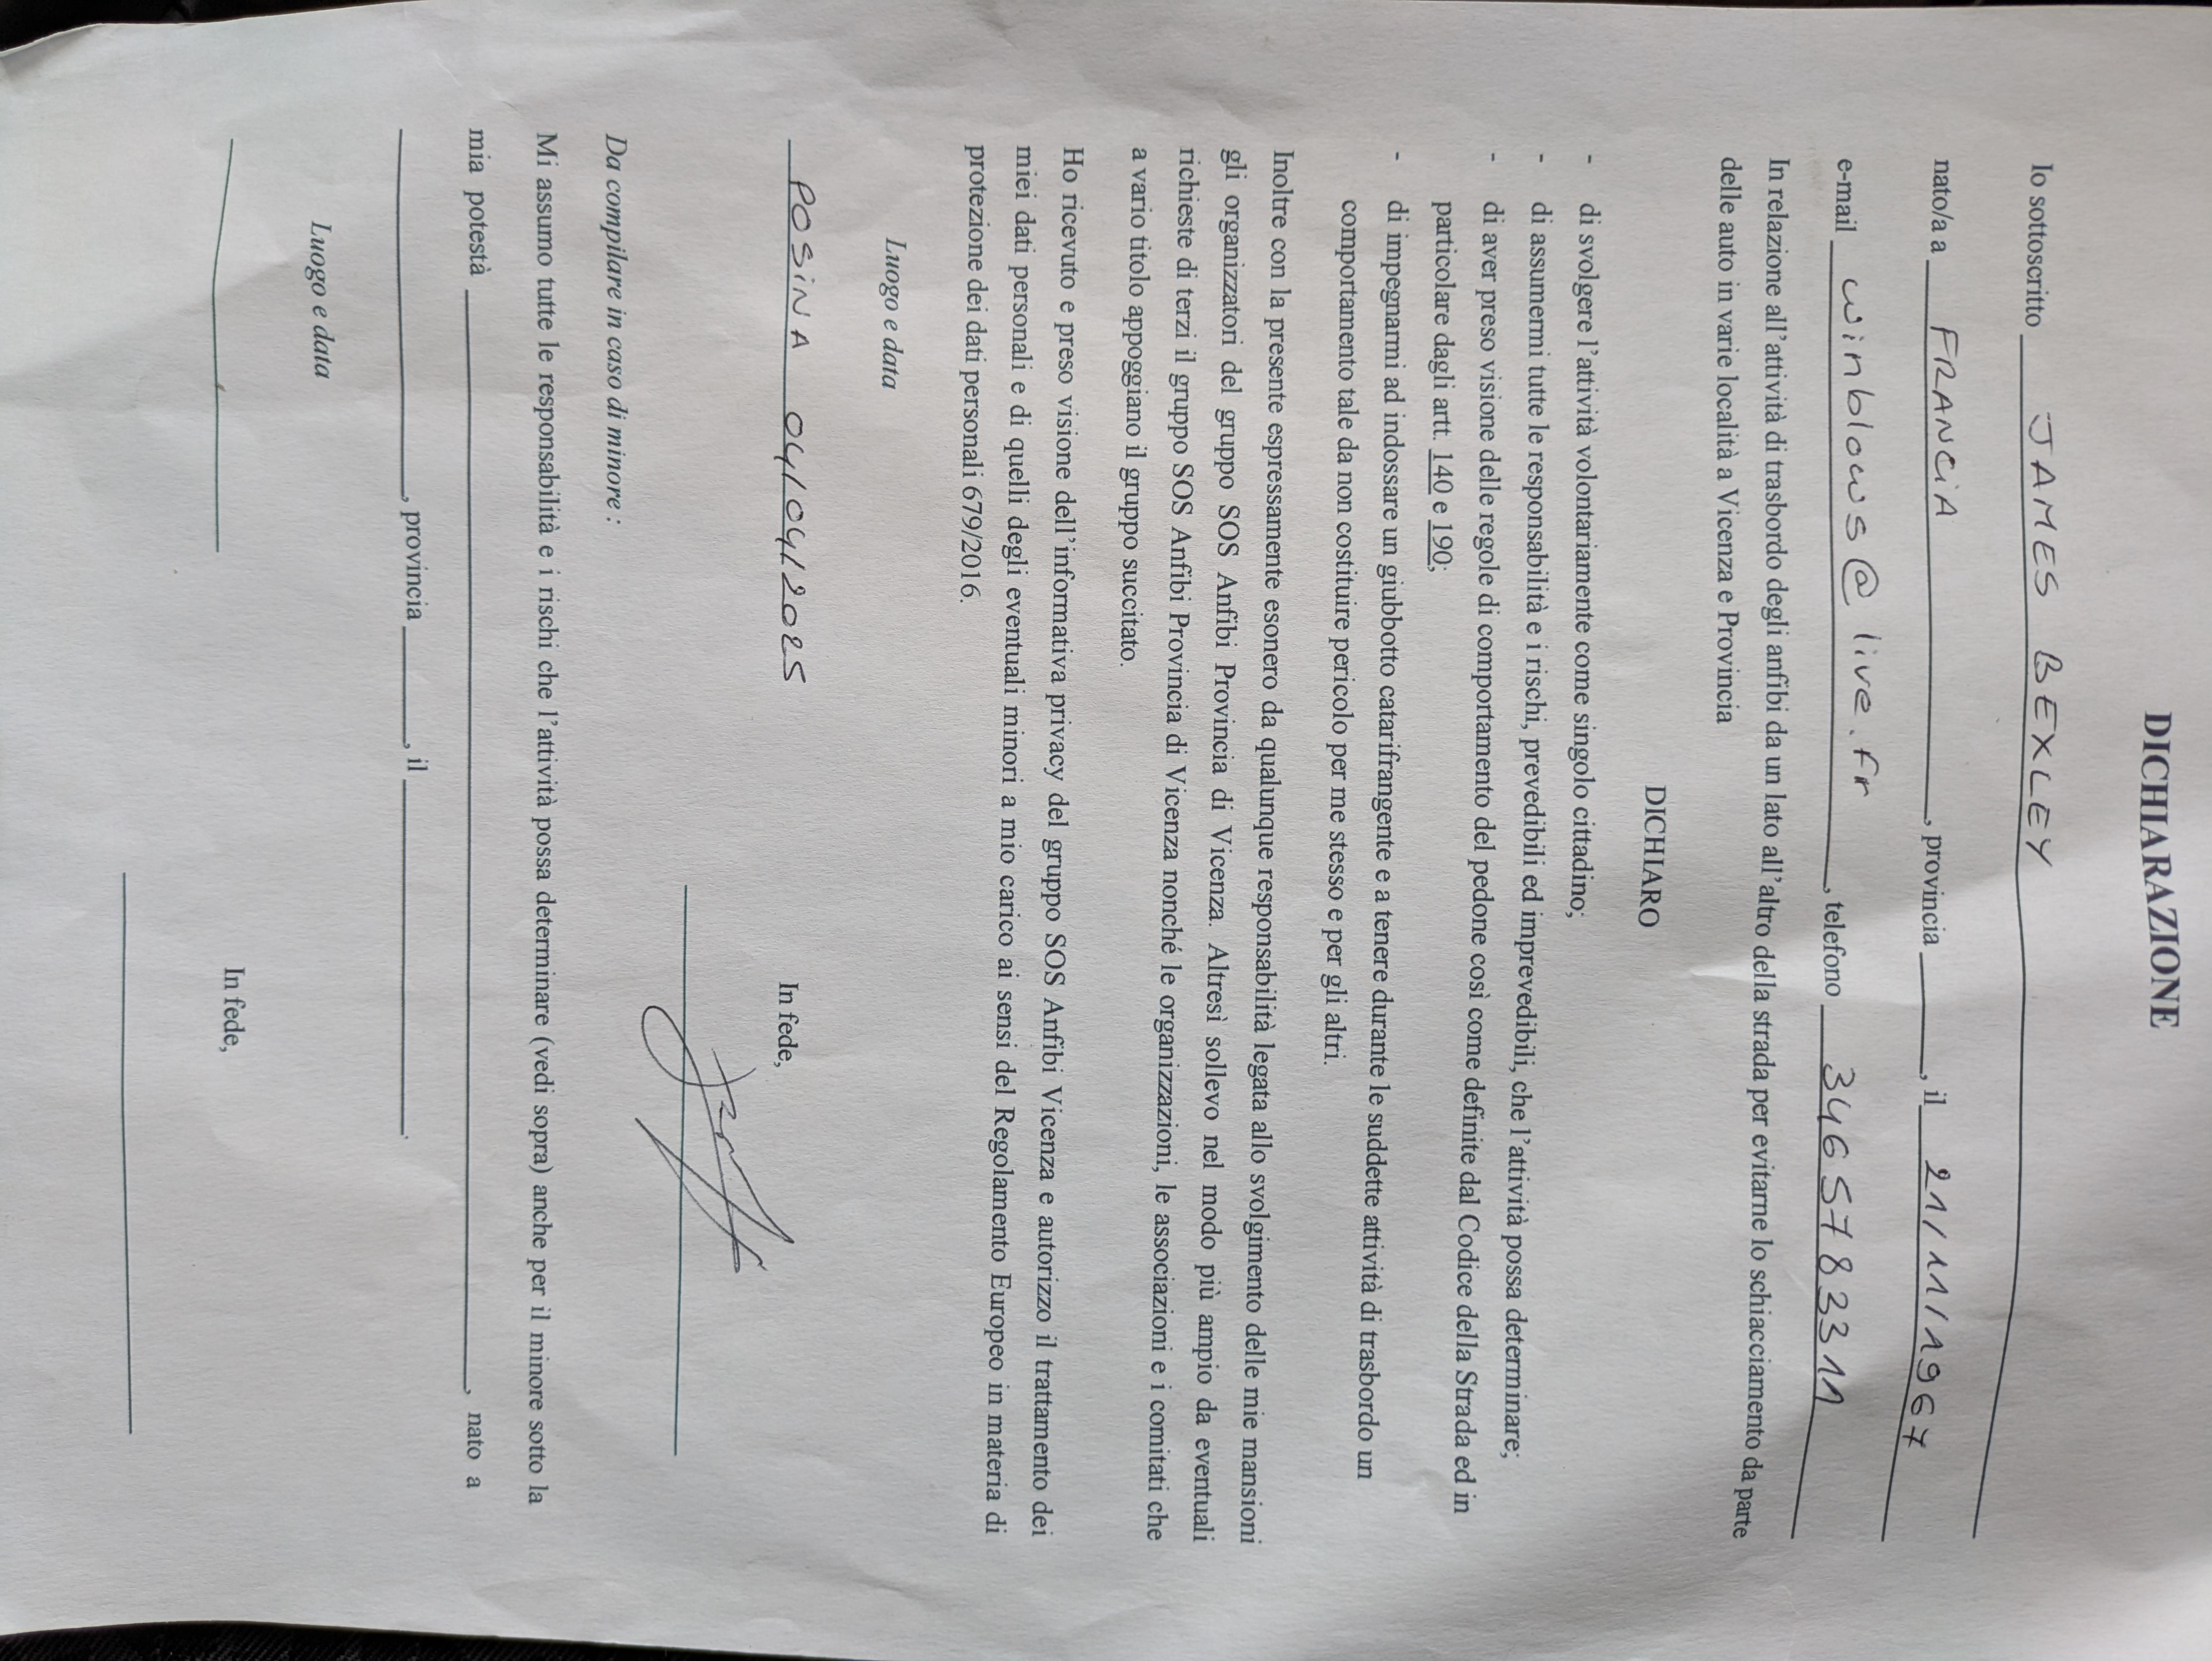 DICHIARAZIONE
Io sottoscritto JAMES BEXLEY
nato/a a FRANCIA, provincia ______, il 21/11/1967
e-mail winblows@live.fr, telefono 3465783311
In relazione all'attività di trasbordo degli anfibi da un lato all'altro della strada per evitarne lo schiacciamento da parte
delle auto in varie località a Vicenza e Provincia
DICHIARO
- di svolgere l'attività volontariamente come singolo cittadino;
- di assumermi tutte le responsabilità e i rischi, prevedibili ed imprevedibili, che l'attività possa determinare;
- di aver preso visione delle regole di comportamento del pedone così come definite dal Codice della Strada ed in
particolare dagli artt. 140 e 190;
- di impegnarmi ad indossare un giubbotto catarifrangente e a tenere durante le suddette attività di trasbordo un
comportamento tale da non costituire pericolo per me stesso e per gli altri.
Inoltre con la presente espressamente esonero da qualunque responsabilità legata allo svolgimento delle mie mansioni
gli organizzatori del gruppo SOS Anfibi Provincia di Vicenza. Altresì sollevo nel modo più ampio da eventuali
richieste di terzi il gruppo SOS Anfibi Provincia di Vicenza nonché le organizzazioni, le associazioni e i comitati che
a vario titolo appoggiano il gruppo succitato.
Ho ricevuto e preso visione dell'informativa privacy del gruppo SOS Anfibi Vicenza e autorizzo il trattamento dei
miei dati personali e di quelli degli eventuali minori a mio carico ai sensi del Regolamento Europeo in materia di
protezione dei dati personali 679/2016.
Luogo e data
In fede,
POSINA 04/04/2025
Da compilare in caso di minore :
Mi assumo tutte le responsabilità e i rischi che l'attività possa determinare (vedi sopra) anche per il minore sotto la
mia potestà ______, nato a
______, provincia ______, il ______.
Luogo e data
In fede,